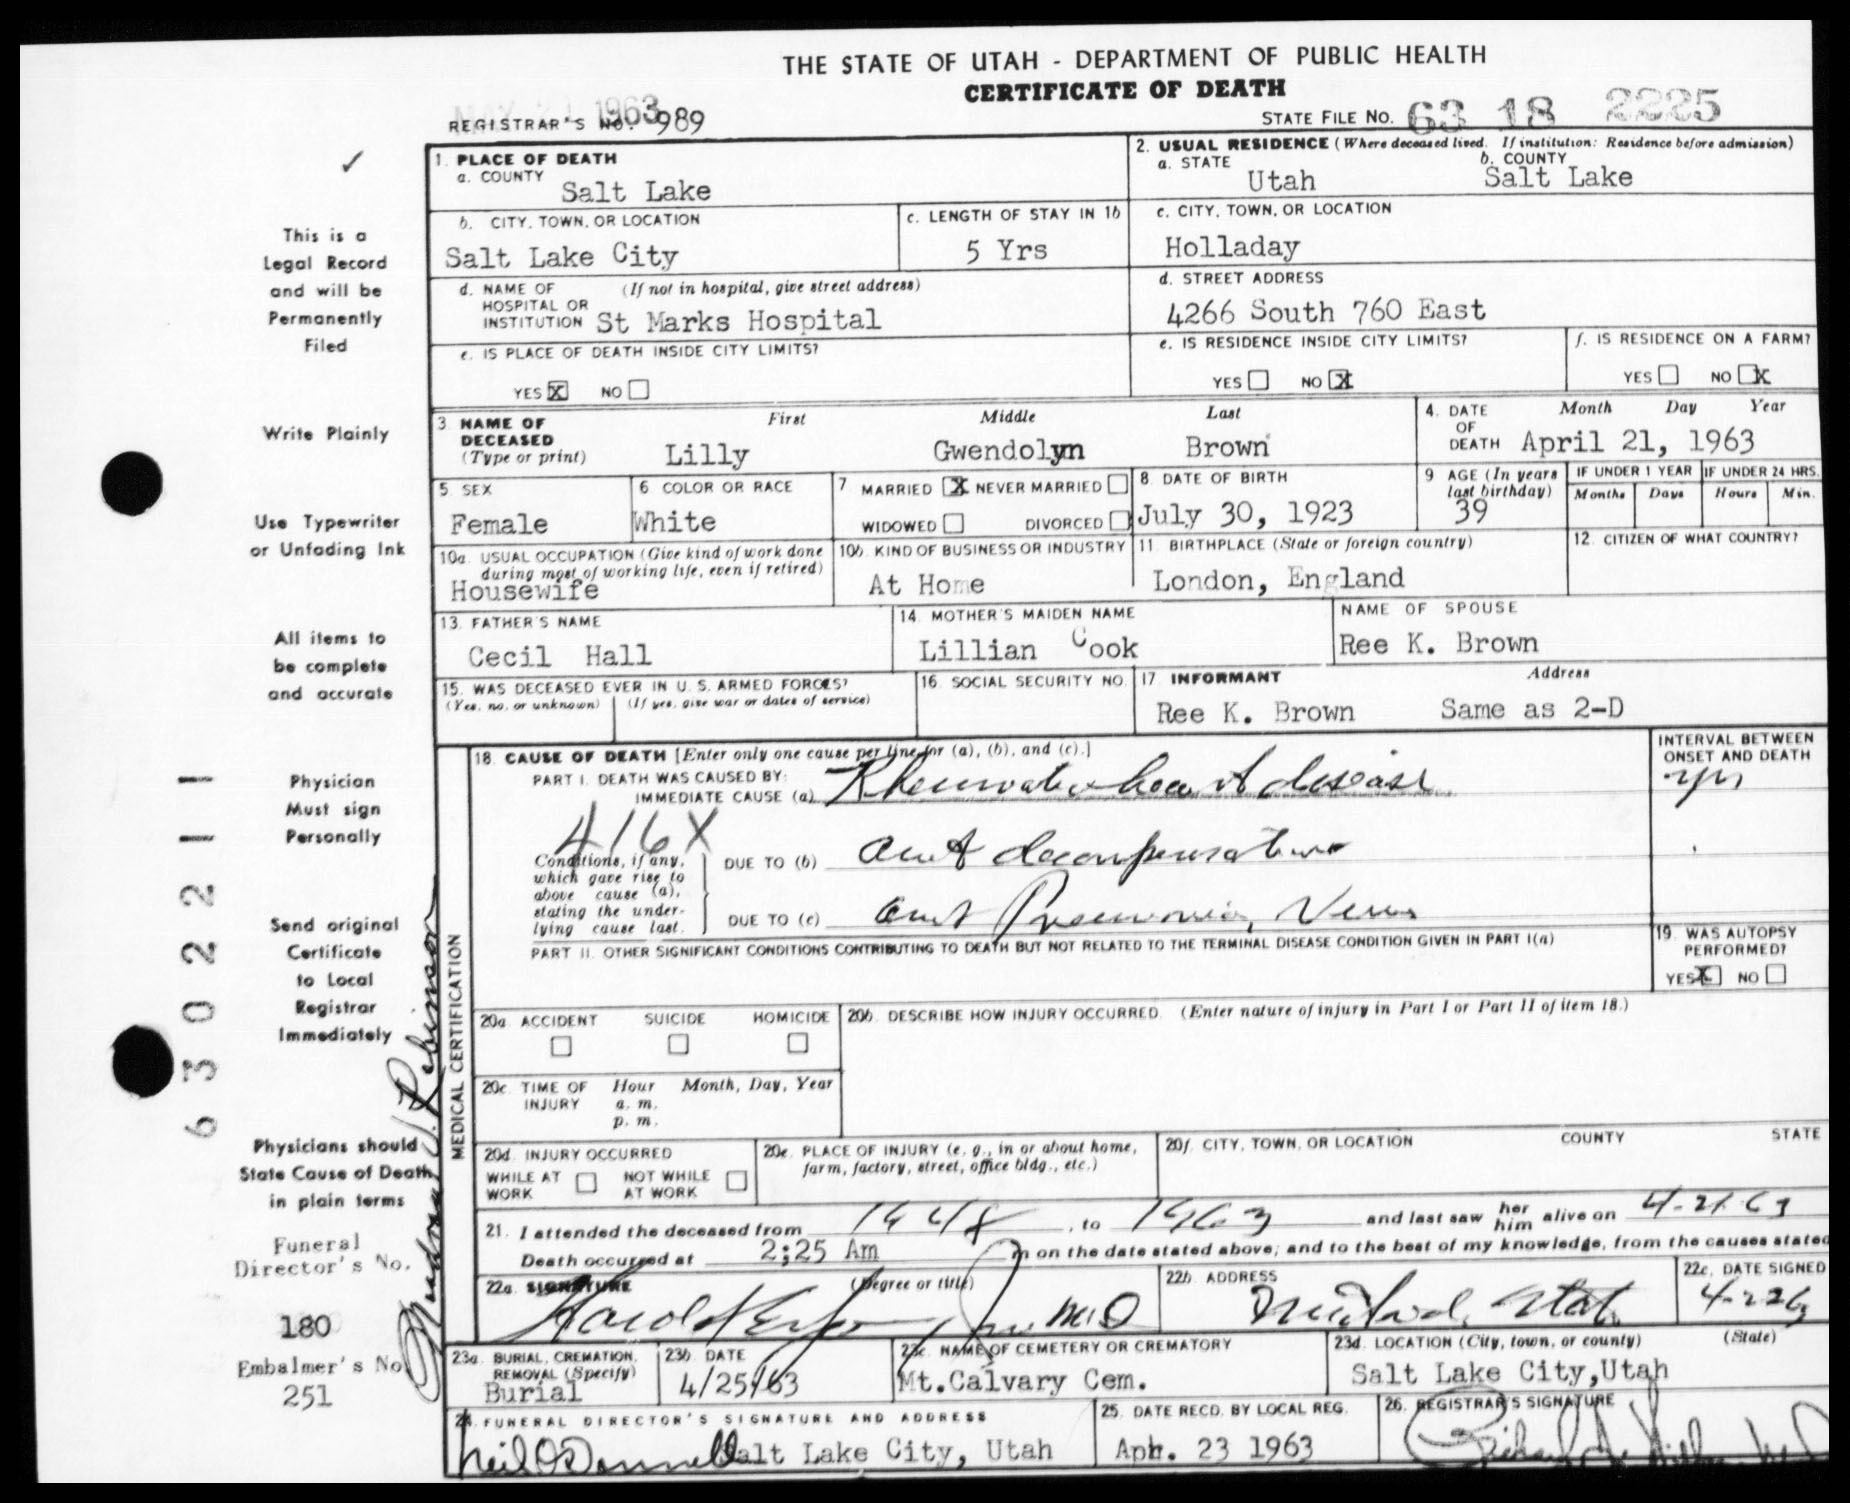 THE STATE OF UTAH - DEPARTMENT OF PUBLIC HEALTH
CERTIFICATE OF DEATH
1963
REGISTRAR'S NO. 989
STATE FILE NO. 63 18 2225
✓
This is a
Legal Record
and will be
Permanently
Filed
Write Plainly
Use Typewriter
or Unfading Ink
All items to
be complete
and accurate
Physician
Must sign
Personally
Send original
Certificate
to Local
Registrar
Immediately
Physicians should
State Cause of Death
in plain terms
Funeral
Director's No.
180
Embalmer's No
251
6302211
1. PLACE OF DEATH
a. COUNTY Salt Lake
b. CITY, TOWN, OR LOCATION
Salt Lake City
c. LENGTH OF STAY IN 1b
5 Yrs
d. NAME OF (If not in hospital, give street address)
HOSPITAL OR
INSTITUTION St Marks Hospital
e. IS PLACE OF DEATH INSIDE CITY LIMITS?
YES X NO
2. USUAL RESIDENCE (Where deceased lived. If institution: Residence before admission)
a. STATE Utah b. COUNTY Salt Lake
c. CITY, TOWN, OR LOCATION
Holladay
d. STREET ADDRESS
4266 South 760 East
e. IS RESIDENCE INSIDE CITY LIMITS?
YES NO X
f. IS RESIDENCE ON A FARM?
YES NO X
3. NAME OF DECEASED (Type or print)
First Middle Last
Lilly Gwendolyn Brown
4. DATE OF DEATH Month Day Year
April 21, 1963
5. SEX
Female
6. COLOR OR RACE
White
7. MARRIED X NEVER MARRIED
WIDOWED DIVORCED
8. DATE OF BIRTH
July 30, 1923
9. AGE (In years last birthday)
39
IF UNDER 1 YEAR IF UNDER 24 HRS.
Months Days Hours Min.
10a. USUAL OCCUPATION (Give kind of work done
during most of working life, even if retired)
Housewife
10b. KIND OF BUSINESS OR INDUSTRY
At Home
11. BIRTHPLACE (State or foreign country)
London, England
12. CITIZEN OF WHAT COUNTRY?
13. FATHER'S NAME
Cecil Hall
14. MOTHER'S MAIDEN NAME
Lillian Cook
NAME OF SPOUSE
Ree K. Brown
15. WAS DECEASED EVER IN U. S. ARMED FORCES?
(Yes, no, or unknown) (If yes, give war or dates of service)
16. SOCIAL SECURITY NO.
17. INFORMANT Address
Ree K. Brown Same as 2-D
MEDICAL CERTIFICATION
18. CAUSE OF DEATH [Enter only one cause per line for (a), (b), and (c).]
PART I. DEATH WAS CAUSED BY:
IMMEDIATE CAUSE (a) Rheumatic heart disease
INTERVAL BETWEEN
ONSET AND DEATH
yrs
416X
Conditions, if any,
which gave rise to
above cause (a),
stating the under-
lying cause last.
DUE TO (b) acut decompensation
DUE TO (c) acut Pneumonia, Virus
PART II. OTHER SIGNIFICANT CONDITIONS CONTRIBUTING TO DEATH BUT NOT RELATED TO THE TERMINAL DISEASE CONDITION GIVEN IN PART I(a)
19. WAS AUTOPSY
PERFORMED?
YES X NO
20a. ACCIDENT SUICIDE HOMICIDE
20b. DESCRIBE HOW INJURY OCCURRED. (Enter nature of injury in Part I or Part II of item 18.)
20c. TIME OF INJURY Hour Month, Day, Year
a. m.
p. m.
20d. INJURY OCCURRED
WHILE AT WORK NOT WHILE AT WORK
20e. PLACE OF INJURY (e. g., in or about home,
farm, factory, street, office bldg., etc.)
20f. CITY, TOWN, OR LOCATION COUNTY STATE
21. I attended the deceased from 1948, to 1963 and last saw her him alive on 4-21-63
Death occurred at 2;25 Am m on the date stated above; and to the best of my knowledge, from the causes stated
22a. SIGNATURE (Degree or title)
Harold M.D
22b. ADDRESS
Midvale, Utah
22c. DATE SIGNED
4-226
23a. BURIAL, CREMATION,
REMOVAL (Specify)
Burial
23b. DATE
4/25/63
23c. NAME OF CEMETERY OR CREMATORY
Mt.Calvary Cem.
23d. LOCATION (City, town, or county) (State)
Salt Lake City,Utah
24. FUNERAL DIRECTOR'S SIGNATURE AND ADDRESS
Neil O'Donnell Salt Lake City, Utah
25. DATE RECD. BY LOCAL REG.
Apr. 23 1963
26. REGISTRAR'S SIGNATURE